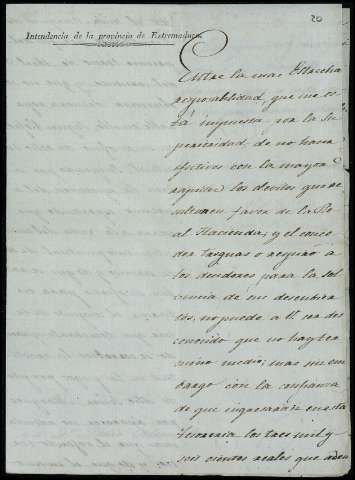 20
Intendencia de la provincia de Extremadura.
Entre la mas Estrecha
responsabilidad, que me es
tá impuesta por la Su
perioridad, de no hacer
efectivos con la mayor
rapidez los devitos que re
sulten en favor de la Re
al Hacienda; y el conce
der treguas o respiro á
los deudores para la sol
vencia de sus descubier
tos, no puede a V. ser des
conocido que no hay ter
mino medio; mas sin em
bargo con la confianza
de que ingresarán en esta
Tesoreria los tres mil y
seis cientos reales que adeu